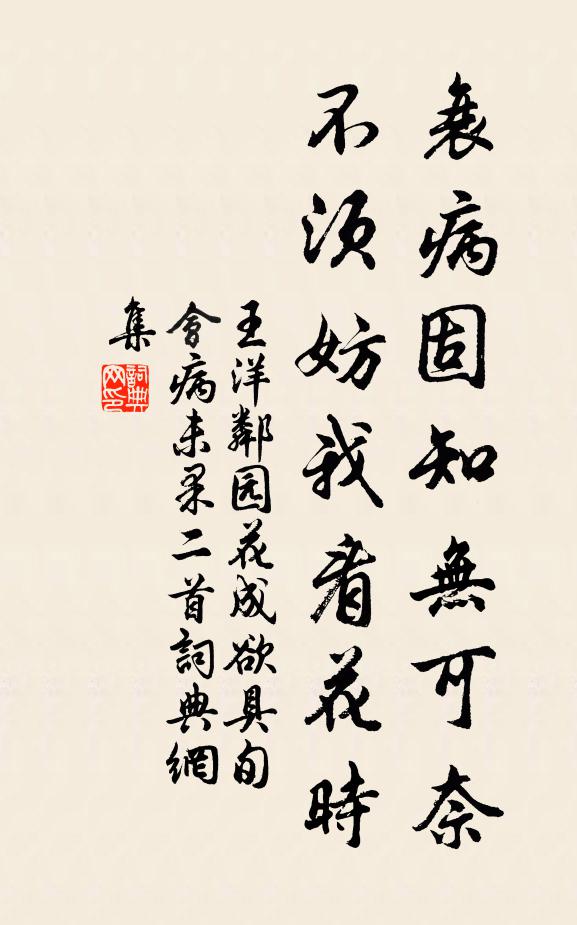 衰病固知無可奈
不須妨我看花時
王洋鄰园花成欲具旬
會病未果二首詞典網
集
詞典网印